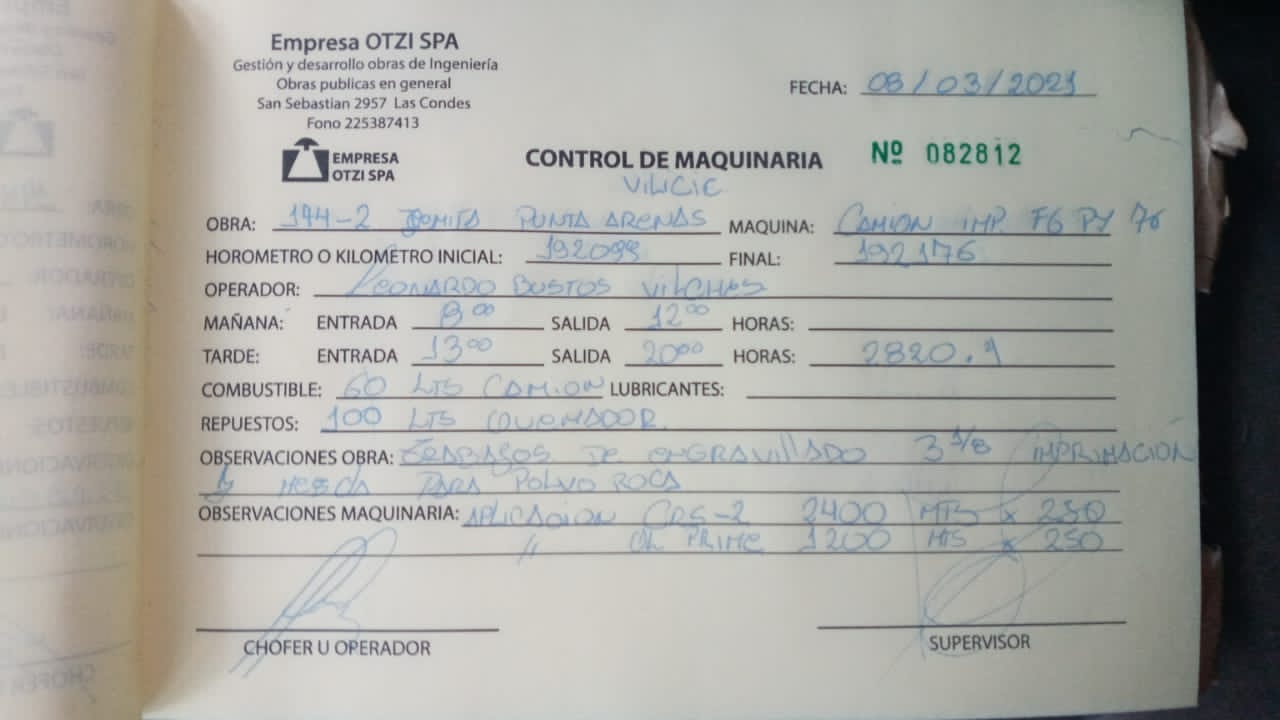 Empresa OTZI SPA
Gestión y desarrollo obras de Ingeniería
Obras publicas en general
San Sebastian 2957 Las Condes
Fono 225387413
EMPRESA
OTZI SPA
FECHA: 08/03/2021
CONTROL DE MAQUINARIA Nº 082812
OBRA: PUNTA ARENAS MAQUINA: CAMION IMP. FG PY 76
HOROMETRO O KILOMETRO INICIAL: 192099 FINAL: 192176
OPERADOR: LEONARDO BUSTOS VILCHES
MAÑANA: ENTRADA 8 00 SALIDA 12 00 HORAS:
TARDE: ENTRADA 13 00 SALIDA 20 00 HORAS: 2820.1
COMBUSTIBLE: 60 LTS CAMION LUBRICANTES:
REPUESTOS: 100 LTS QUEMADOR.
OBSERVACIONES OBRA: TRABAJOS DE ENGRAVILLADO 3/8 IMPRIMACIÓN
PARA POLVO ROCA
OBSERVACIONES MAQUINARIA: APLICACION CRS-2 2400 MTS x 250
" PRIME 1200 MTS x 250
CHOFER U OPERADOR SUPERVISOR